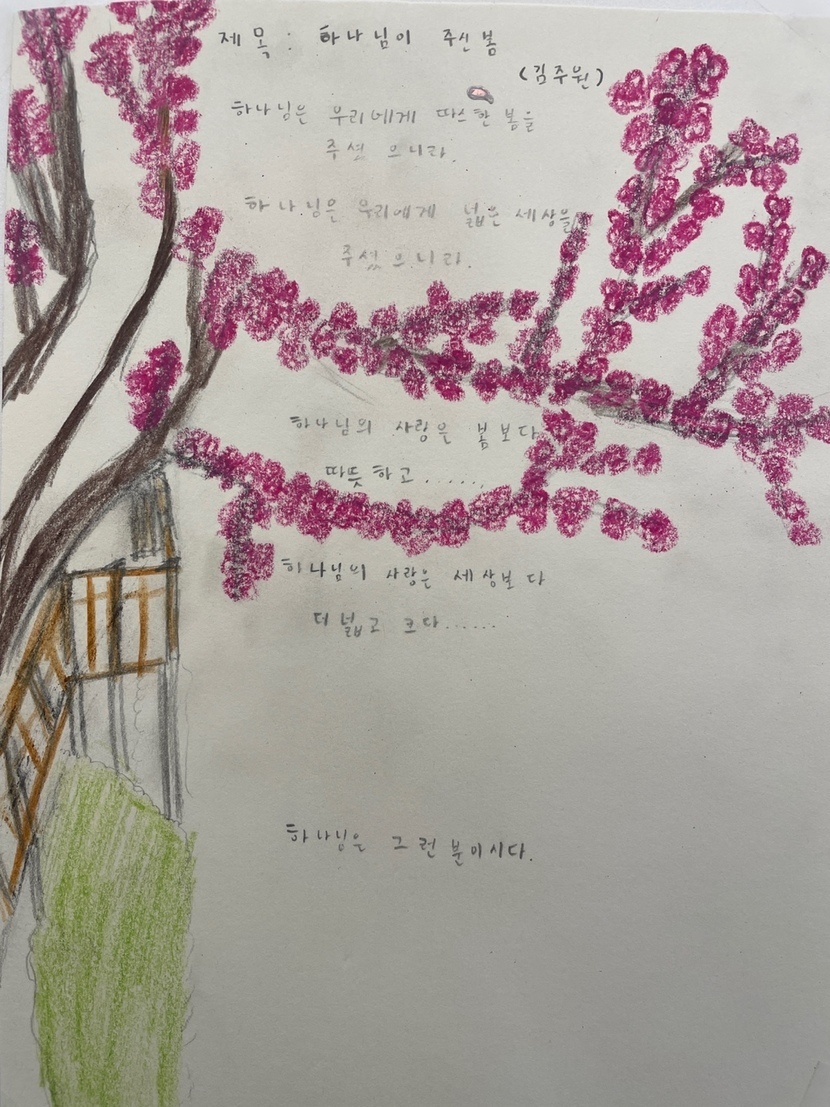 제목: 하나님이 주신 봄
(김주원)
하나님은 우리에게 따스한 봄을
주셨으니라.
하나님은 우리에게 넓은 세상을
주셨으니라.
하나님의 사랑은 봄보다
따뜻하고.......
하나님의 사랑은 세상보다
더 넓고 크다......
하나님은 그런 분이시다.